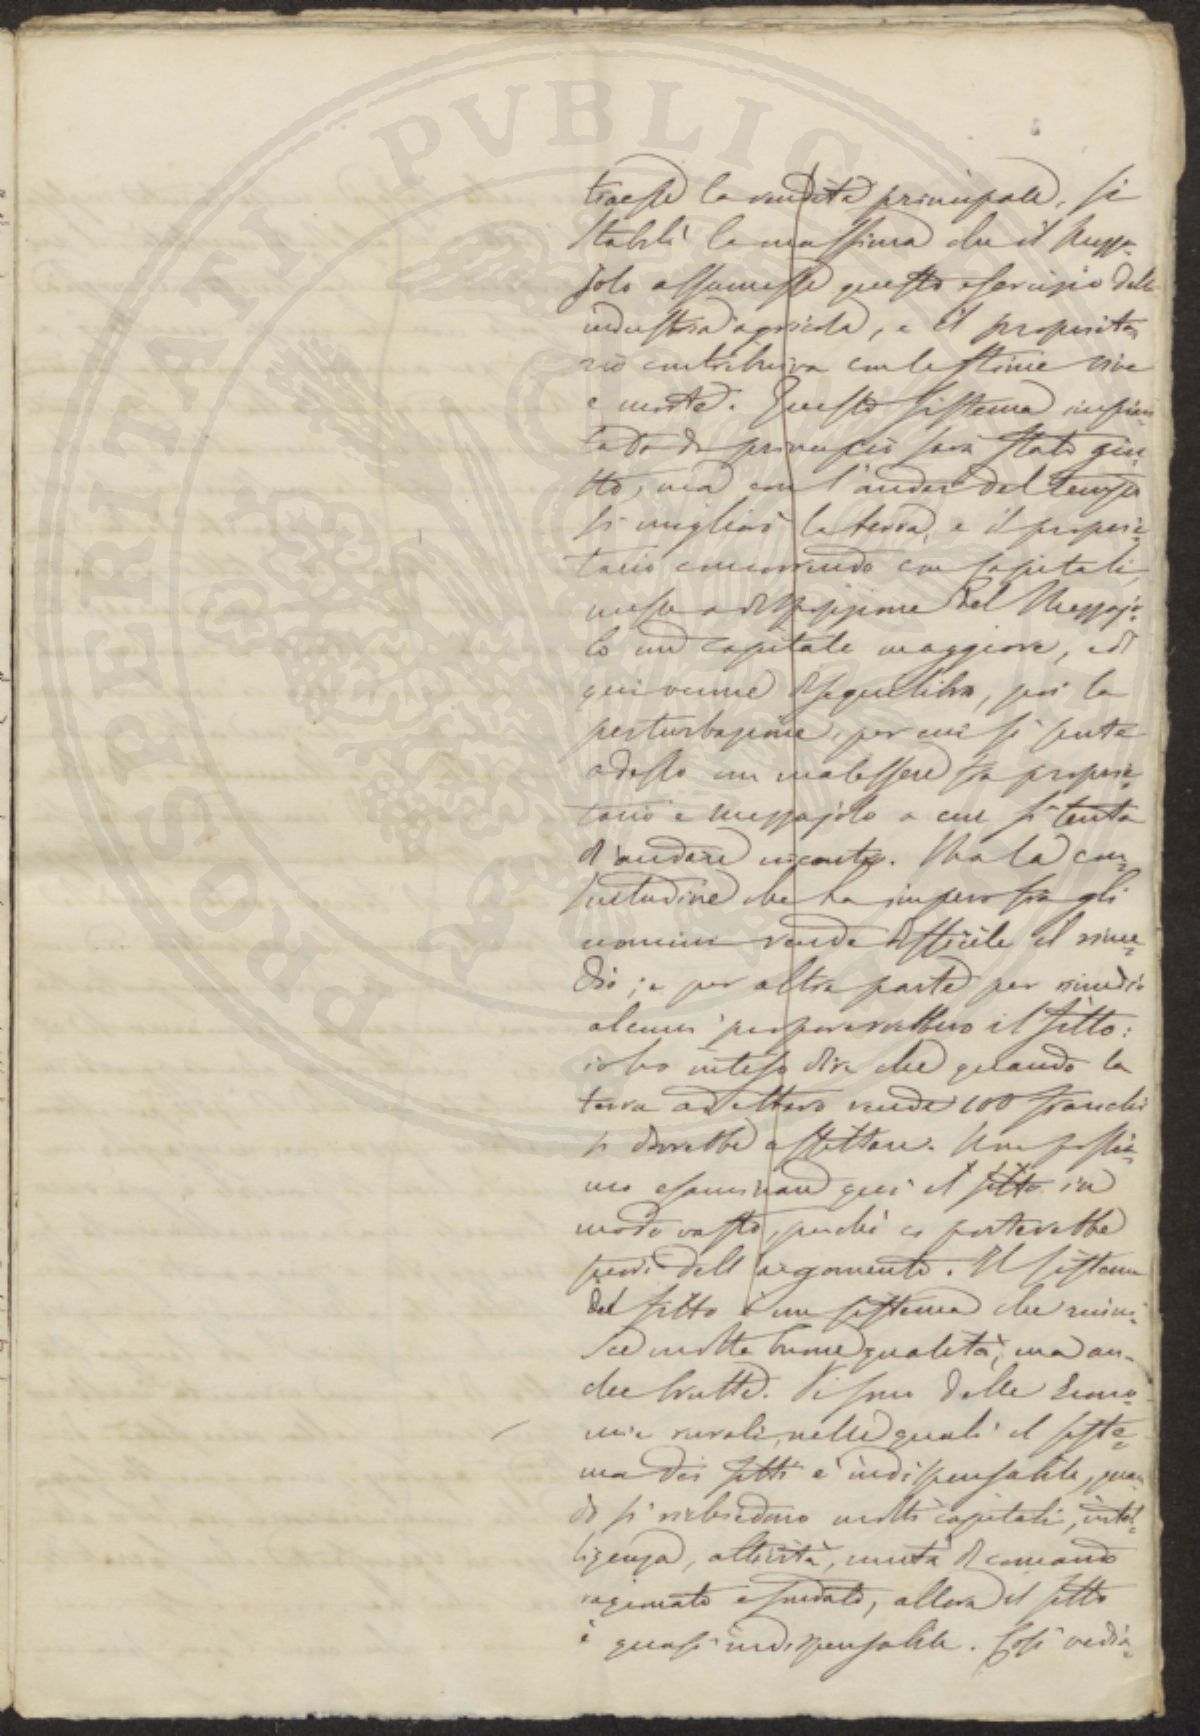 PROSPERITATI PVBLIC
traesse la rendita principale, si
stabilì la massima che il Mezza-
jolo assumesse questo esercizio dell'
industria agricola, e il proprieta
rio contribuiva con le stime vive
e morte. Questo sistema impian
tato da principio sarà stato giu-
sto, ma con l'andar del tempo
si migliorò la terra, e il proprie-
tario concorrendo con capitali
mise a disposizione del Mezzajo-
lo un capitale maggiore, e di
qui venne disequilibrio, poi la
perturbazione, per cui si sente
adesso un malessere tra proprie-
tario e mezzajolo a cui si tenta
d'andare incontro. Ma la con-
suetudine che ha impero fra gli
uomini rende difficile il rime-
dio; e per altra parte per rimedio
alcuni proporrebbero il fitto:
io ho inteso dire che quando la
terra ad ettaro rende 100 franchi
si dovrebbe affittare. Non possia-
mo esaminare qui il fitto in
modo vasto, perchè ci porterebbe
fuori dell'argomento. Il sistema
del fitto è un sistema che riuni-
sce molte buone qualità, ma an-
che brutte. Vi sono delle Econo-
mie rurali, nelle quali il siste-
ma dei fitti è indispensabile, quan
do si richiedono molti capitali, intel-
ligenza, attività, unità di comando
ragionato e fondato, allora il fitto
è quasi indispensabile. Così vedia-